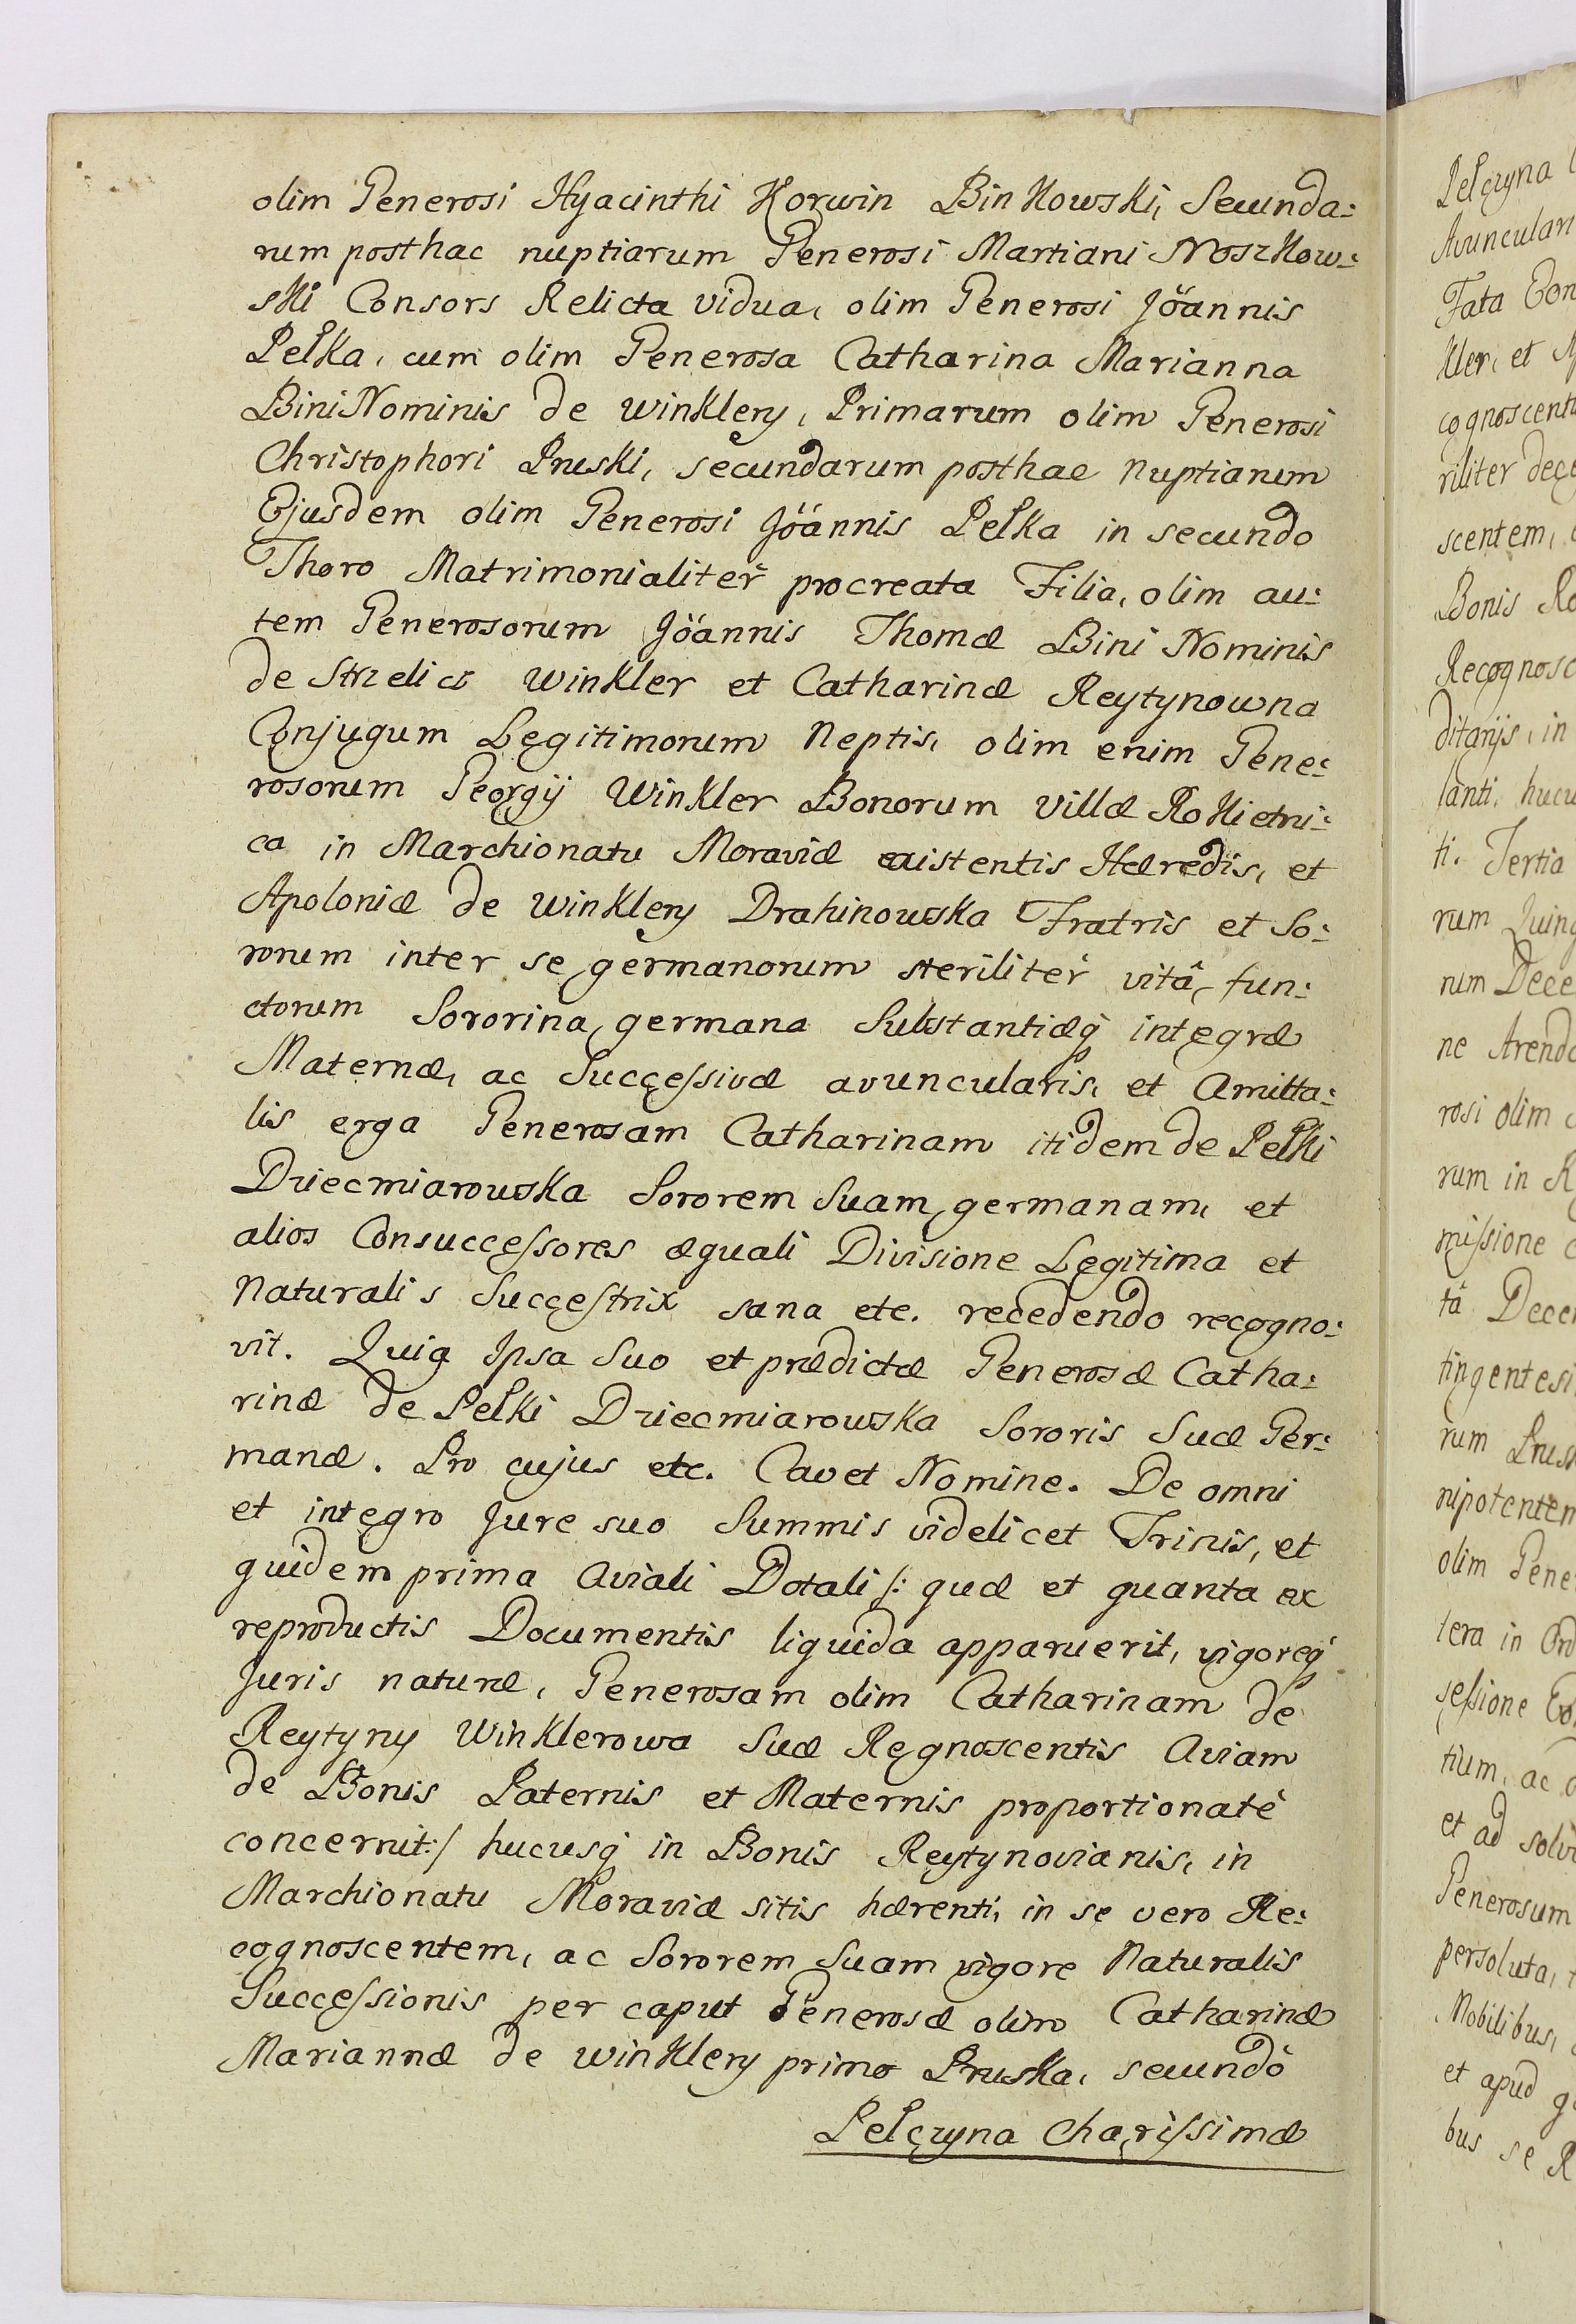 olim Generosi Hyacinthi Korwin Binkowski, Secunda:
rum posthac nuptiarum Generosi Martiani Noszkow:
ski Consors Relicta vidua, olim Generosi Jöannis
Pełka, cum olim Generosa Catharina Marianna
Bini Nominis de Winklery, Primarum olim Generosi
Christophori Pruski, secundarum posthac nuptiarum
Ejusdem olim Generosi Jöannis Pełka in secundo
Thoro Matrimonialiter procreata Filia, olim au:
tem Generosorum Jöannis Thomæ Bini Nominis
de Strzelicz Winkler et Catharinæ Reytynowna
Conjugum Legitimorum Neptis, olim enim Gene:
rosorum Georgij Winkler Bonorum villæ Rokietni:
ca in Marchionatu Moraviæ existentis Hæredis, et
Apoloniæ de Winklery Drahinowska Fratris et So:
rorum inter se germanorum steriliter vitâ fun:
ctorum Sororina germana Substantiæq́ integræ
Maternæ, ac Successivæ avuncularis, et Amitta:
lis erga Generosam Catharinam itidem de Pełki
Dziecmiarowska Sororem Suam germanam, et
alios Consuccessores æquali Divisione Legitima et
Naturalis Succestrix sana etc. recedendo recogno:
vit. Quia Ipsa Suo et prædictæ Generosæ Catha:
rinæ de Pełki Dziecmiarowska Sororis Suæ Ger:
manæ. Pro cujus etc. Cavet Nomine. De omni
et integro Jure suo Summis videlicet Trinis, et
quidem prima Aviali Dotali /: quæ et quanta ex
reproductis Documentis liquida apparuerit, vigoreq́
Juris naturæ, Generosam olim Catharinam de
Reytyny Winklerowa Suæ Regnoscentis Aviam
de Bonis Paternis et Maternis proportionatè
concernit :/ hucusq́ in Bonis Reytynovianis, in
Marchionatu Moraviæ sitis hærenti, in se vero Re:
cognoscentem, ac Sororem Suam vigore Naturalis
Successionis per caput Generosæ olim Catharinæ
Mariannæ de Winklery primo Pruska, secundò
Pełczyna Charissimæ
Pełczyna
Avuncular
Fata
kler, et
cognoscent
riliter
scentem,
Bonis
Recognosc
ditarijs, in
lanti,
ti. Tertia
rum
rum Dece
ne Arend
rosi olim
rum in
missione
tâ
tingentesi
rum
nipotentem
olim Gene
tera in
sessione
tium, ac
et ad
Generosum
persoluta,
Nobilibus,
et apud
bus se